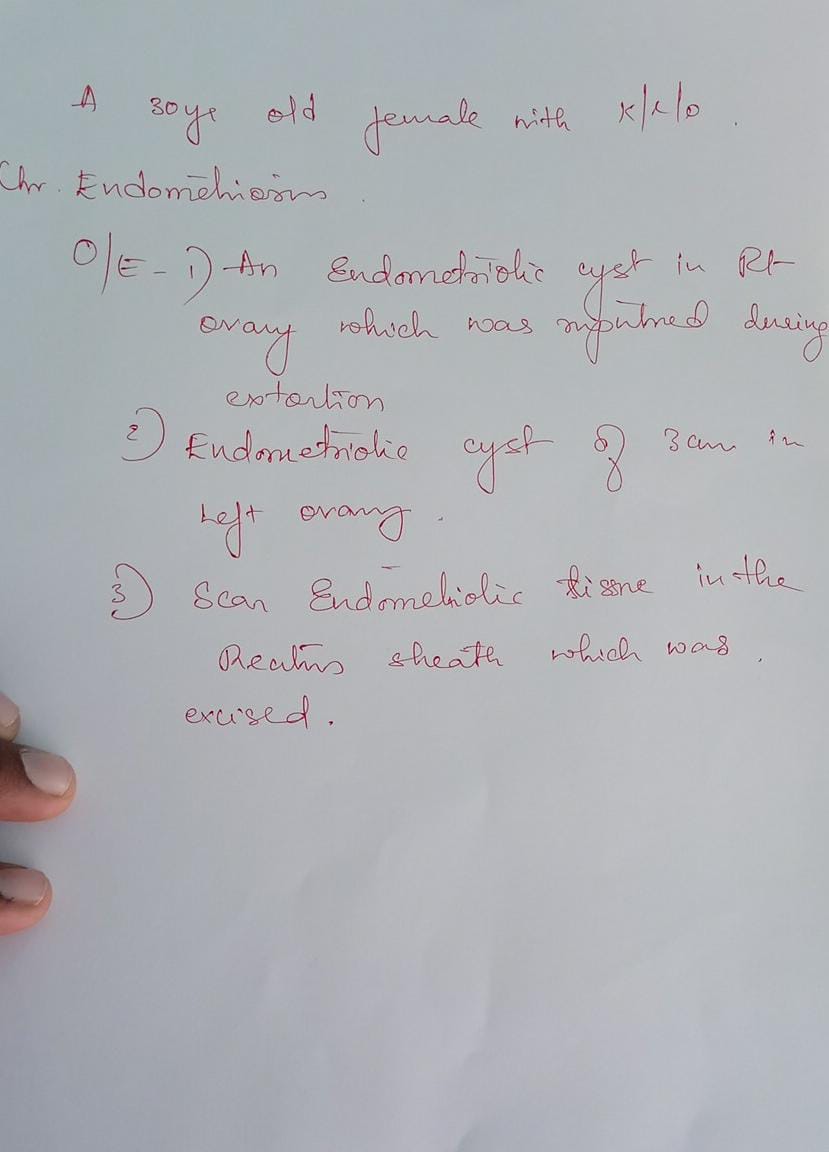 A 30yr old female with K/c/o.
Chr. Endometriosis.
O/E - 1) An Endometriotic cyst in Rt
ovary which was ruptured during
extortion
2) Endometriotic cyst of 3cm in
Left ovary.
3) Scar Endometriotic tissue in the
Rectus sheath which was.
excised.